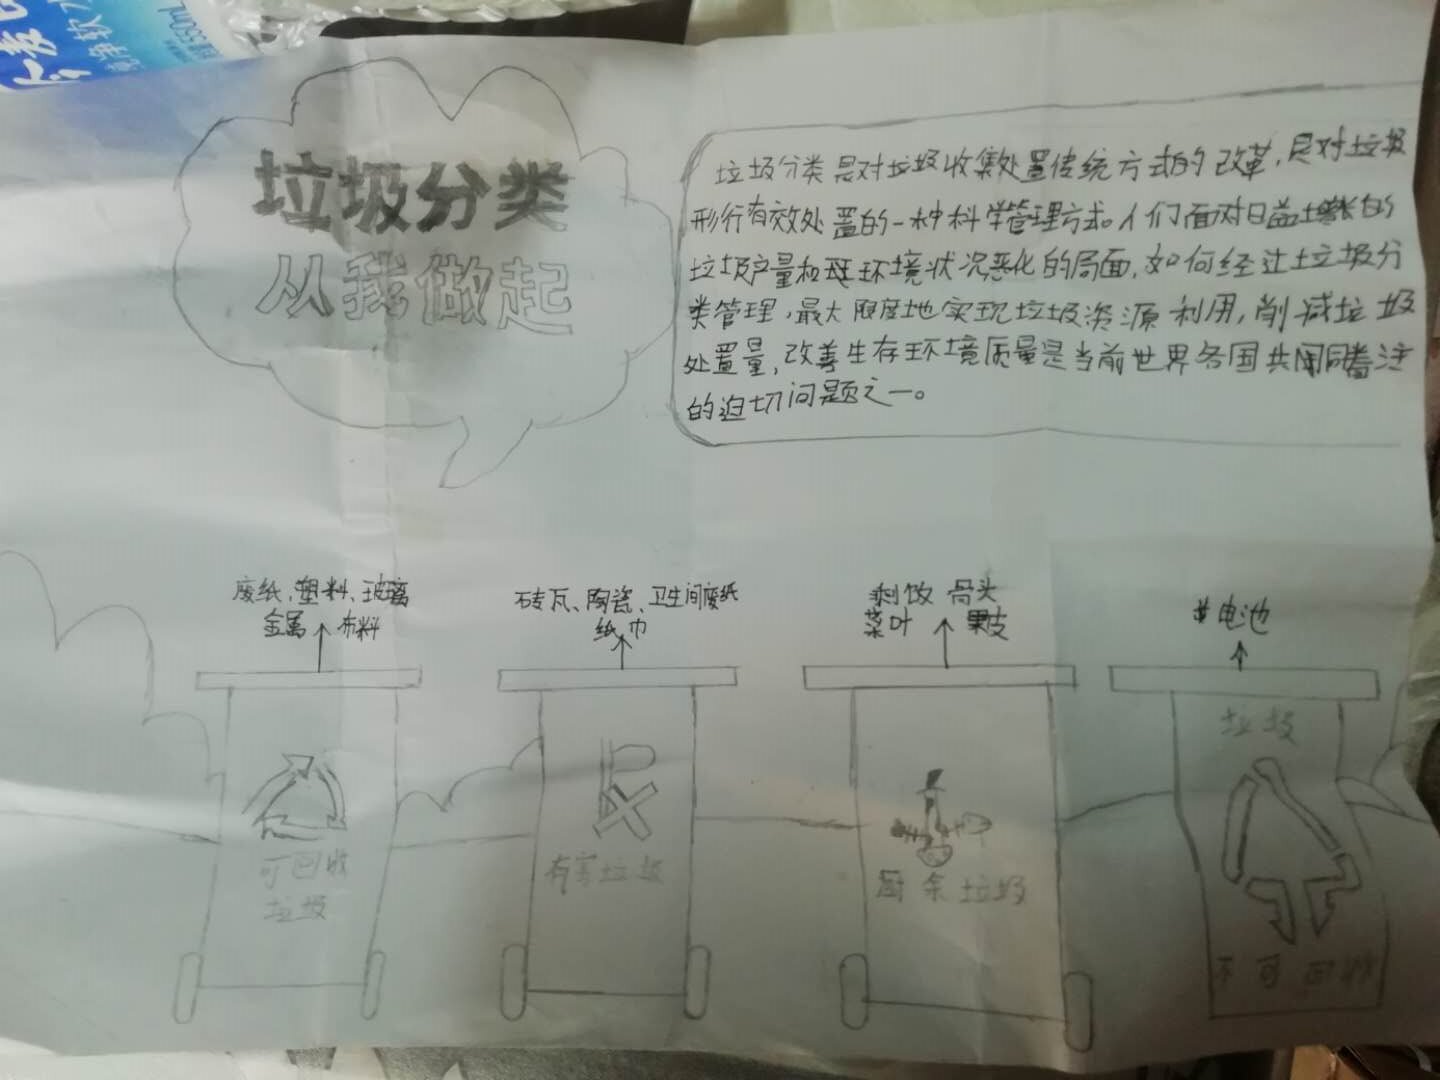 500mL
垃圾分类
从我做起
垃圾分类是对垃圾收集处置传统方式的改革,是对垃圾
形行有效处置的一种科学管理方式。人们面对日益增长的
垃圾产量和环境状况恶化的局面,如何经过垃圾分
类管理,最大限度地实现垃圾资源利用,削减垃圾
处置量,改善生存环境质量是当前世界各国共同着注
的迫切问题之一。
废纸、塑料、玻璃
金属 布料
砖瓦、陶瓷、卫生间废纸
纸巾
剩饭 骨头
菜叶 果皮
电池
可回收
垃圾
有害垃圾
厨余垃圾
垃圾
不可回收